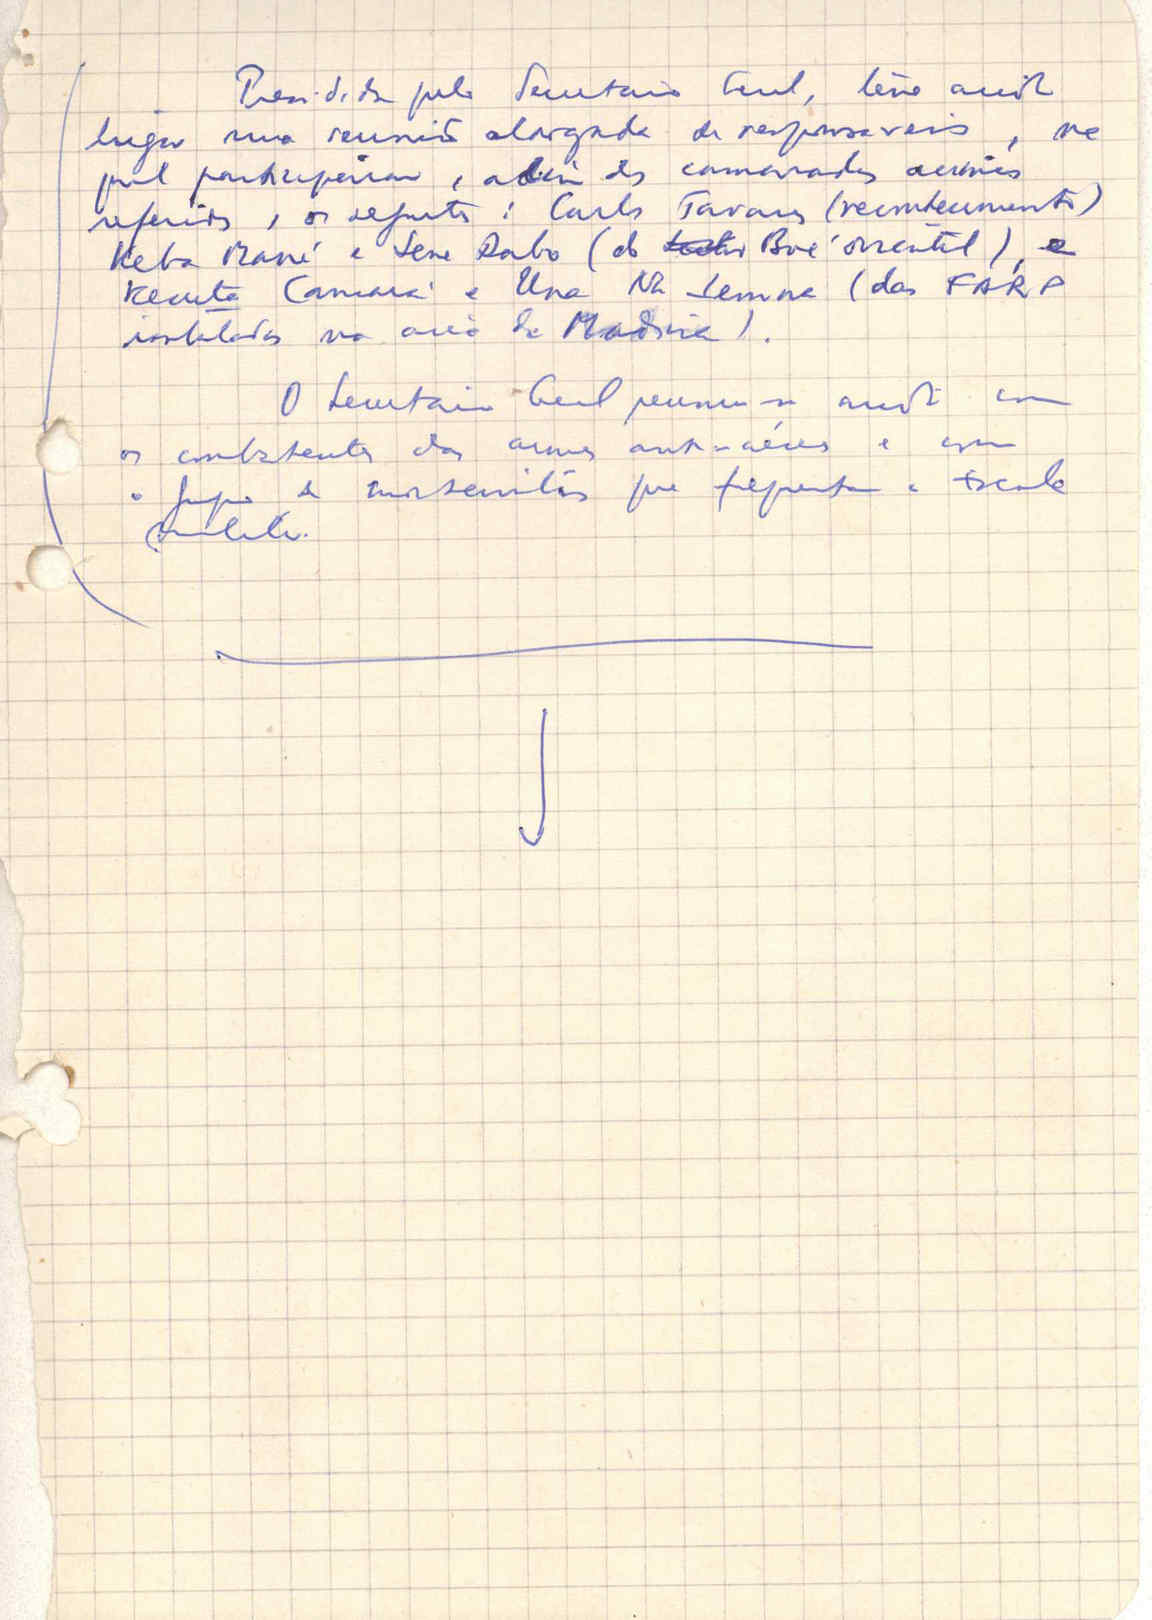 Presidida pelo Secretario Geral, teve ainda
lugar uma reunião alargada de responsaveis, na
qual participaram, além dos camaradas acima
referidos, os seguintes: Carlos Tavares (reconhecimento)
Keba Mané e Sene Dabo (do Boé oriental), e
Kecuta Camará e Una Na (das FARP
instaladas na area de Madina).
O Secretario Geral reuniu-se ainda com
os combatentes das armas anti-aéreas e com
o grupo de que frequenta a Escola